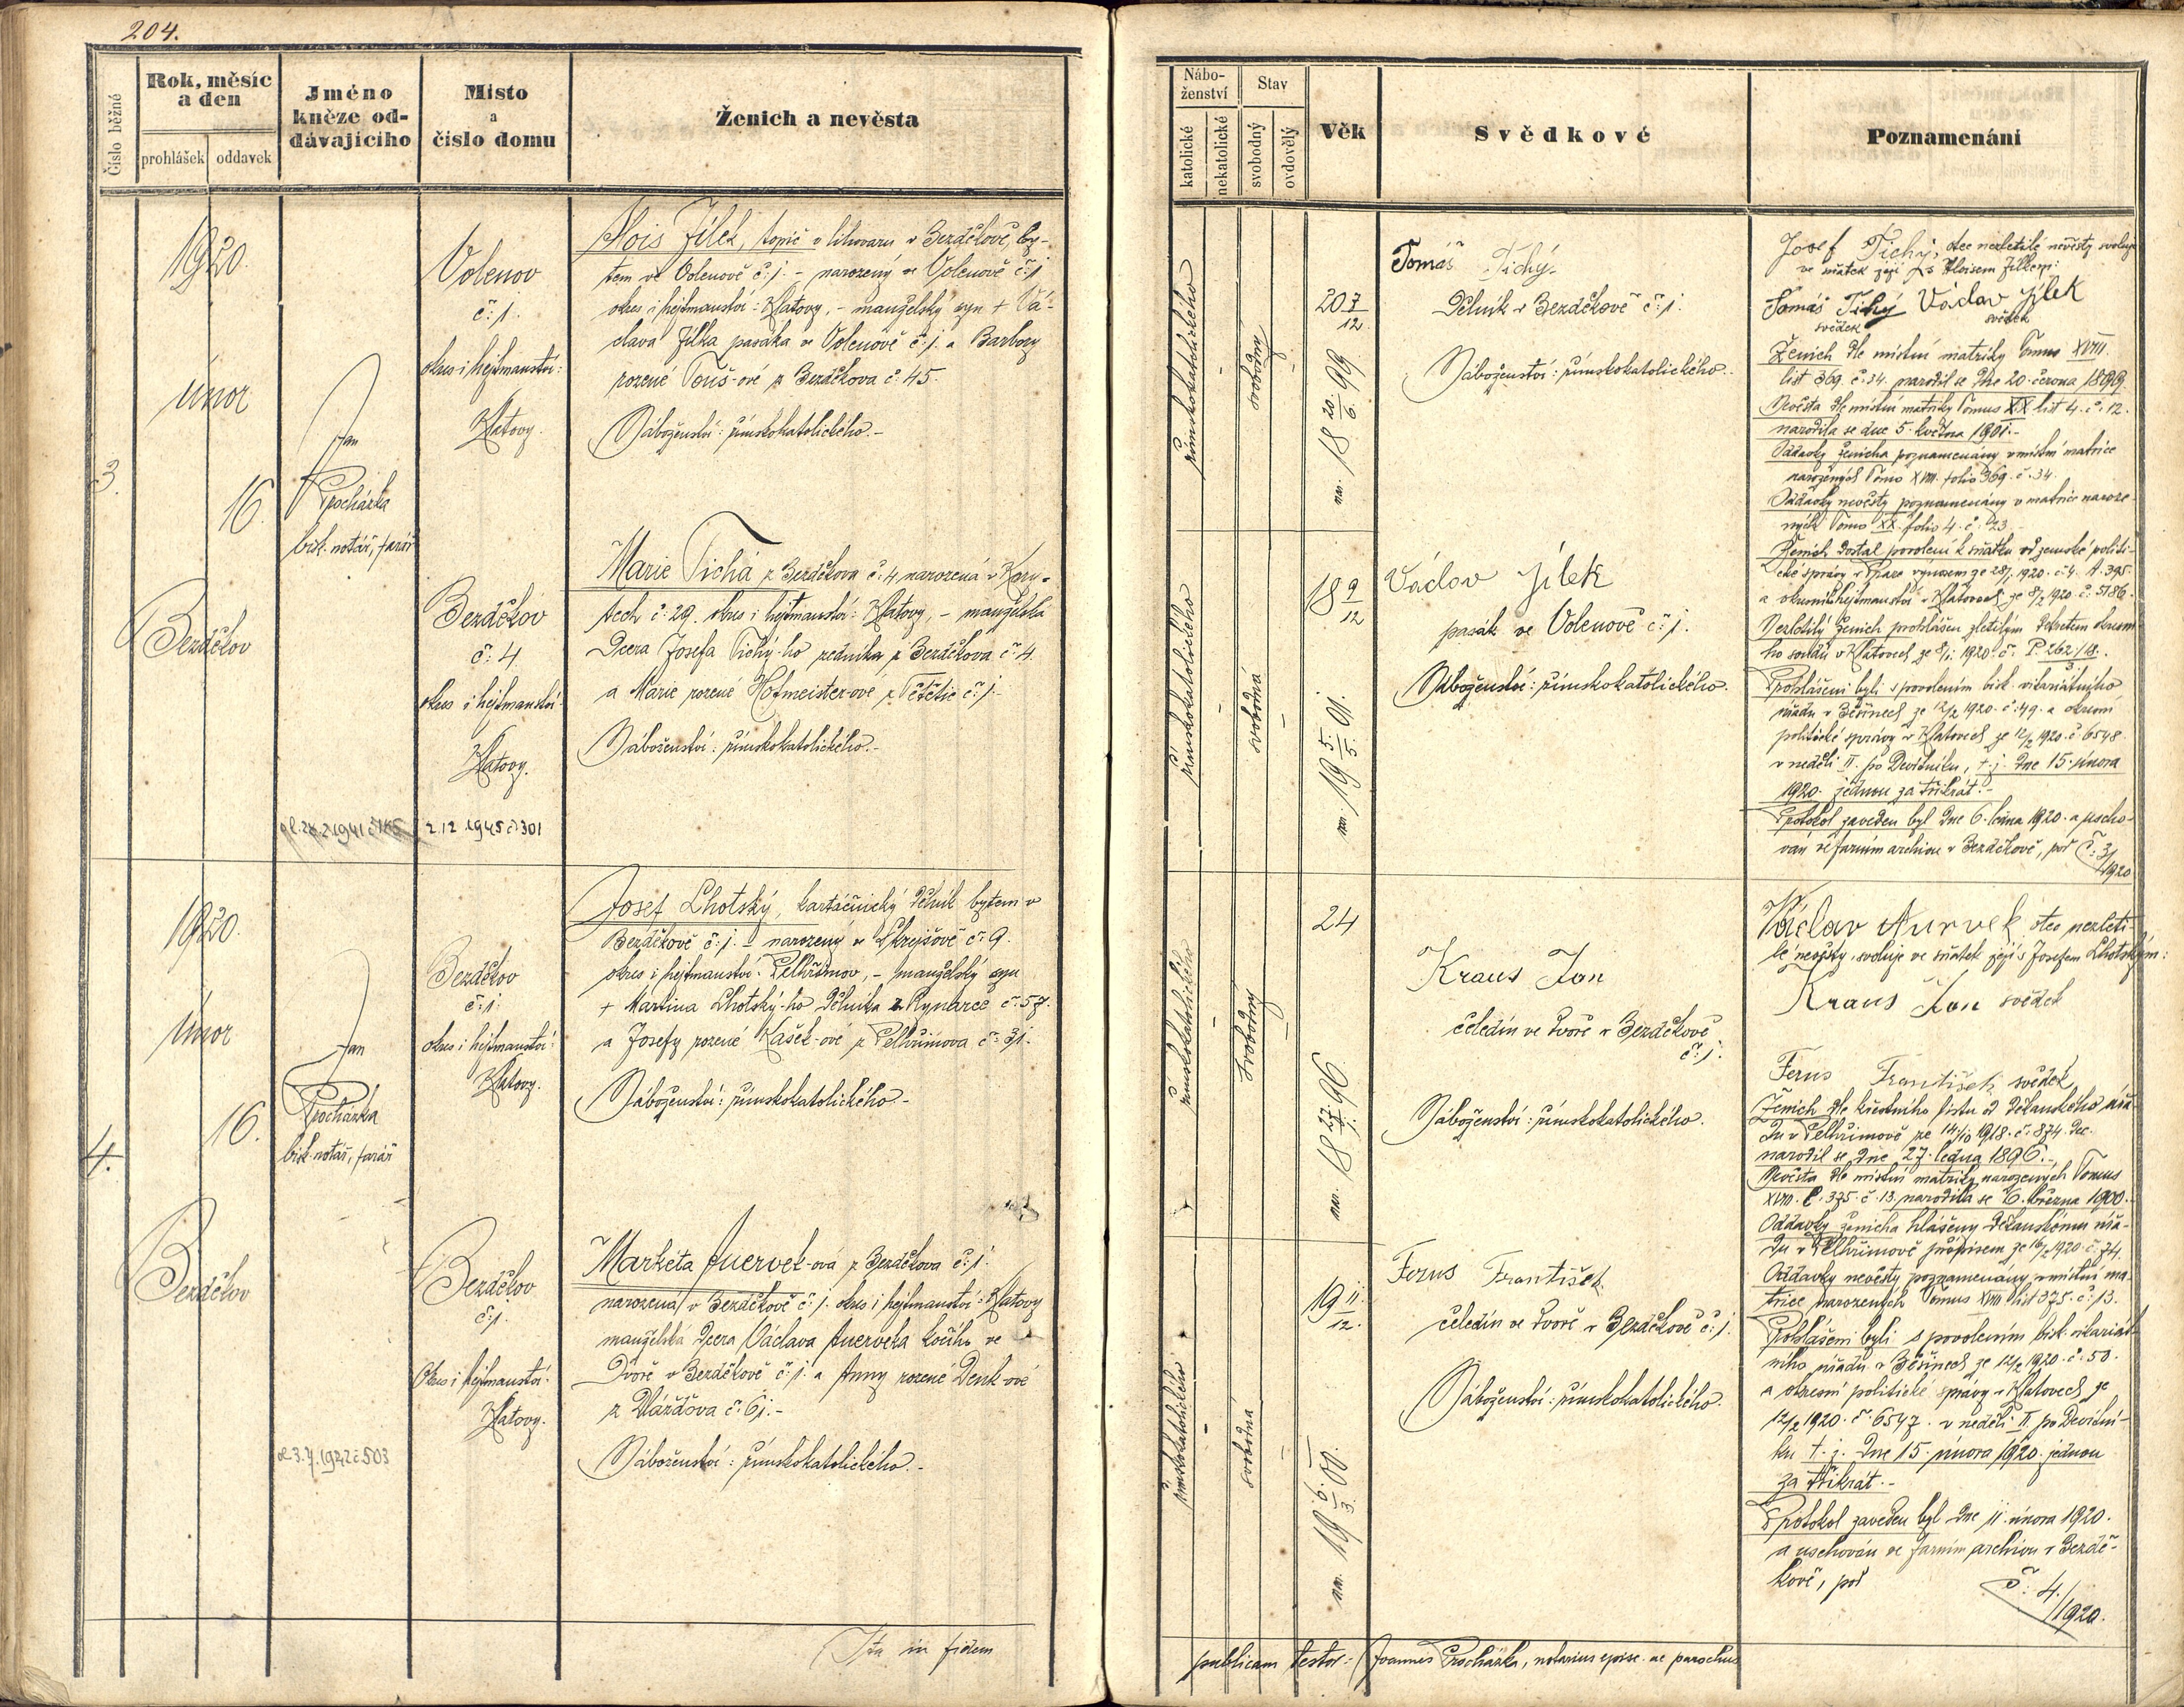 204.
Číslo běžné
Rok, měsíc
a den
prohlášek
oddavek
Jméno
kněze od-
dávajícího
Místo
a
číslo domu
Ženich a nevěsta
1920.
únor
3.
16.
Bezděkov
Jan
Procházka
bisk. notář, farář
Volenov
č: 1.
okres i hejtmanství:
Klatovy.
Alois Jílek, topič v lihovaru v Bezděkově, by-
tem ve Volenově č: 1. - narozený ve Volenově č: 1
okres i hejtmanství: Klatovy, - manželský syn + Vá-
clava Jílka pasáka ve Volenově č: 1. a Barbory
rozené Touš-ové z Bezděkova č: 45.
Náboženství: římskokatolického.-
Bezděkov
č: 4
okres i hejtmanství:
Klatovy.
Marie Tichá z Bezděkova č: 4, narozená v Kory-
tech č: 29. okres i hejtmanství: Klatovy, - manželská
dcera Josefa Tichý-ho zedníka z Bezděkova č: 4.
a Marie rozené Hofmeister-ové z Tětětic č: 1.-
Náboženství: římskokatolického.-
2.12.1945 č 301
1920.
únor
4.
16.
Bezděkov
Jan
Procházka
bisk. notář, farář
Bezděkov
č: 1.
okres i hejtmanství:
Klatovy.
Josef Lhotský, kartáčnický dělník bytem v
Bezděkově č: 1. - narozený ve Skrýšově č: 9.
okres i hejtmanství: Pelhřimov, - manželský syn
+ Martina Lhotský-ho dělníka z Rynarce č: 57.
a Josefy rozené Kašek-ové z Pelhřimova č: 31.
Náboženství: římskokatolického.-
Bezděkov
č: 1.
Okres i hejtmanství:
Klatovy.
Marketa Auervek-ová z Bezděkova č: 1.
narozená v Bezděkově č: 1. okres i hejtmanství: Klatovy
manželská dcera Václava Auerveka kočího ve
Dvoře v Bezděkově č: 1. a Anny rozené Denk-ové
z Vlážďova č: 61.-
Náboženství: římskokatolického.-
Ita in fidem
Nábo-
ženství
katolické
nekatolické
Stav
svobodný
ovdovělý
Věk
Svědkové
Poznamenání
římskokatolického
svobodný
20 7/12
nar. 18 20/6. 99
Tomáš Tichý
Dělník v Bezděkově č: 1.
Náboženství: římskokatolického.
římskokatolického
svobodná
18 9/12
nar. 19 5/5. 01.
Václav Jílek
pasák ve Volenově č: 1.
Náboženství: římskokatolického.
Josef Tichý, otec nezletilé nevěsty svoluje
ve sňatek její s Aloisem Jílkem:
Tomáš Tichý Václav Jílek
svědek svědek
Ženich dle místní matriky Tomus XVIII.
list 369. č: 34. narodil se dne 20. června 1899.
Nevěsta dle místní matriky Tomus XX list 4. č: 12.
narodila se dne 5. května 1901.-
Oddavky ženicha poznamenány v místní matrice
narozených Tomo XVIII. folio 369. č: 34.
Oddavky nevěsty poznamenány v matrice naroze-
ných Tomo XX. folio 4. č: 23.
Ženich dostal povolení k sňatku od zemské politi-
cké správy v Praze výnosem ze 28/1. 1920. č: 4. A. 395.
a okresního hejtmanství v Klatovech ze 8/2 1920. č: 5186.
Nezletilý ženich prohlášen zletilým dekretem okresní-
ho soudu v Klatovech ze 8/1. 1920. č: P. 262/18.
Prohlášeni byli s povolením bisk. vikariátního
úřadu v Běšinech ze 12/2 1920. č: 49. a okresní
politické správy v Klatovech ze 12/2 1920. č: 6548.
v neděli II. po Devítníku, t. j. dne 15. února
1920. jednou za třikrát.-
Protokol zaveden byl dne 6. února 1920. a uscho-
ván ve farním archivu v Bezděkově, pod č: 3/1920
římskokatolického
svobodný
24
nar. 18 27/1. 96.
Kraus Jan
čeledín ve dvoře v Bezděkově
č: 1.
Náboženství: římskokatolického.
římskokatolického
svobodná
19 11/12.
nar. 19 6/3. 00.
Ferus František
čeledín ve dvoře v Bezděkově č: 1.
Náboženství: římskokatolického.
Václav Aurvek otec nezleti-
lé nevěsty, svoluje ve sňatek její s Josefem Lhotským:
Kraus Jan svědek
Ferus František svědek
Ženich dle křestního listu od děkanského úřa-
du v Pelhřimově ze 14/10 1918. č: 874. dec.
narodil se dne 27. ledna 1896.-
Nevěsta dle místní matriky narozených Tomus
XVIII. l. 375. č: 13. narodila se 6. března 1900.
Oddavky ženicha hlášeny děkanskému úřa-
du v Pelhřimově přípisem ze 16/2 1920. č: 74.
Oddavky nevěsty poznamenány v místní ma-
trice narozených Tomus XVIII list 375. č: 13.
Prohlášeni byli s povolením bisk. vikariát-
ního úřadu v Běšinech ze 12/2 1920. č: 50.
a okresní politické správy v Klatovech ze
12/2 1920. č: 6547. v neděli II. po Devítní-
ku t. j. dne 15. února 1920. jednou
za třikrát.-
Protokol zaveden byl dne 11. února 1920.
a uschován ve farním archivu v Bezdě-
kově, pod č: 4./1920.
publicam testor: Joannes Procházka, notarius episc. ac parochus